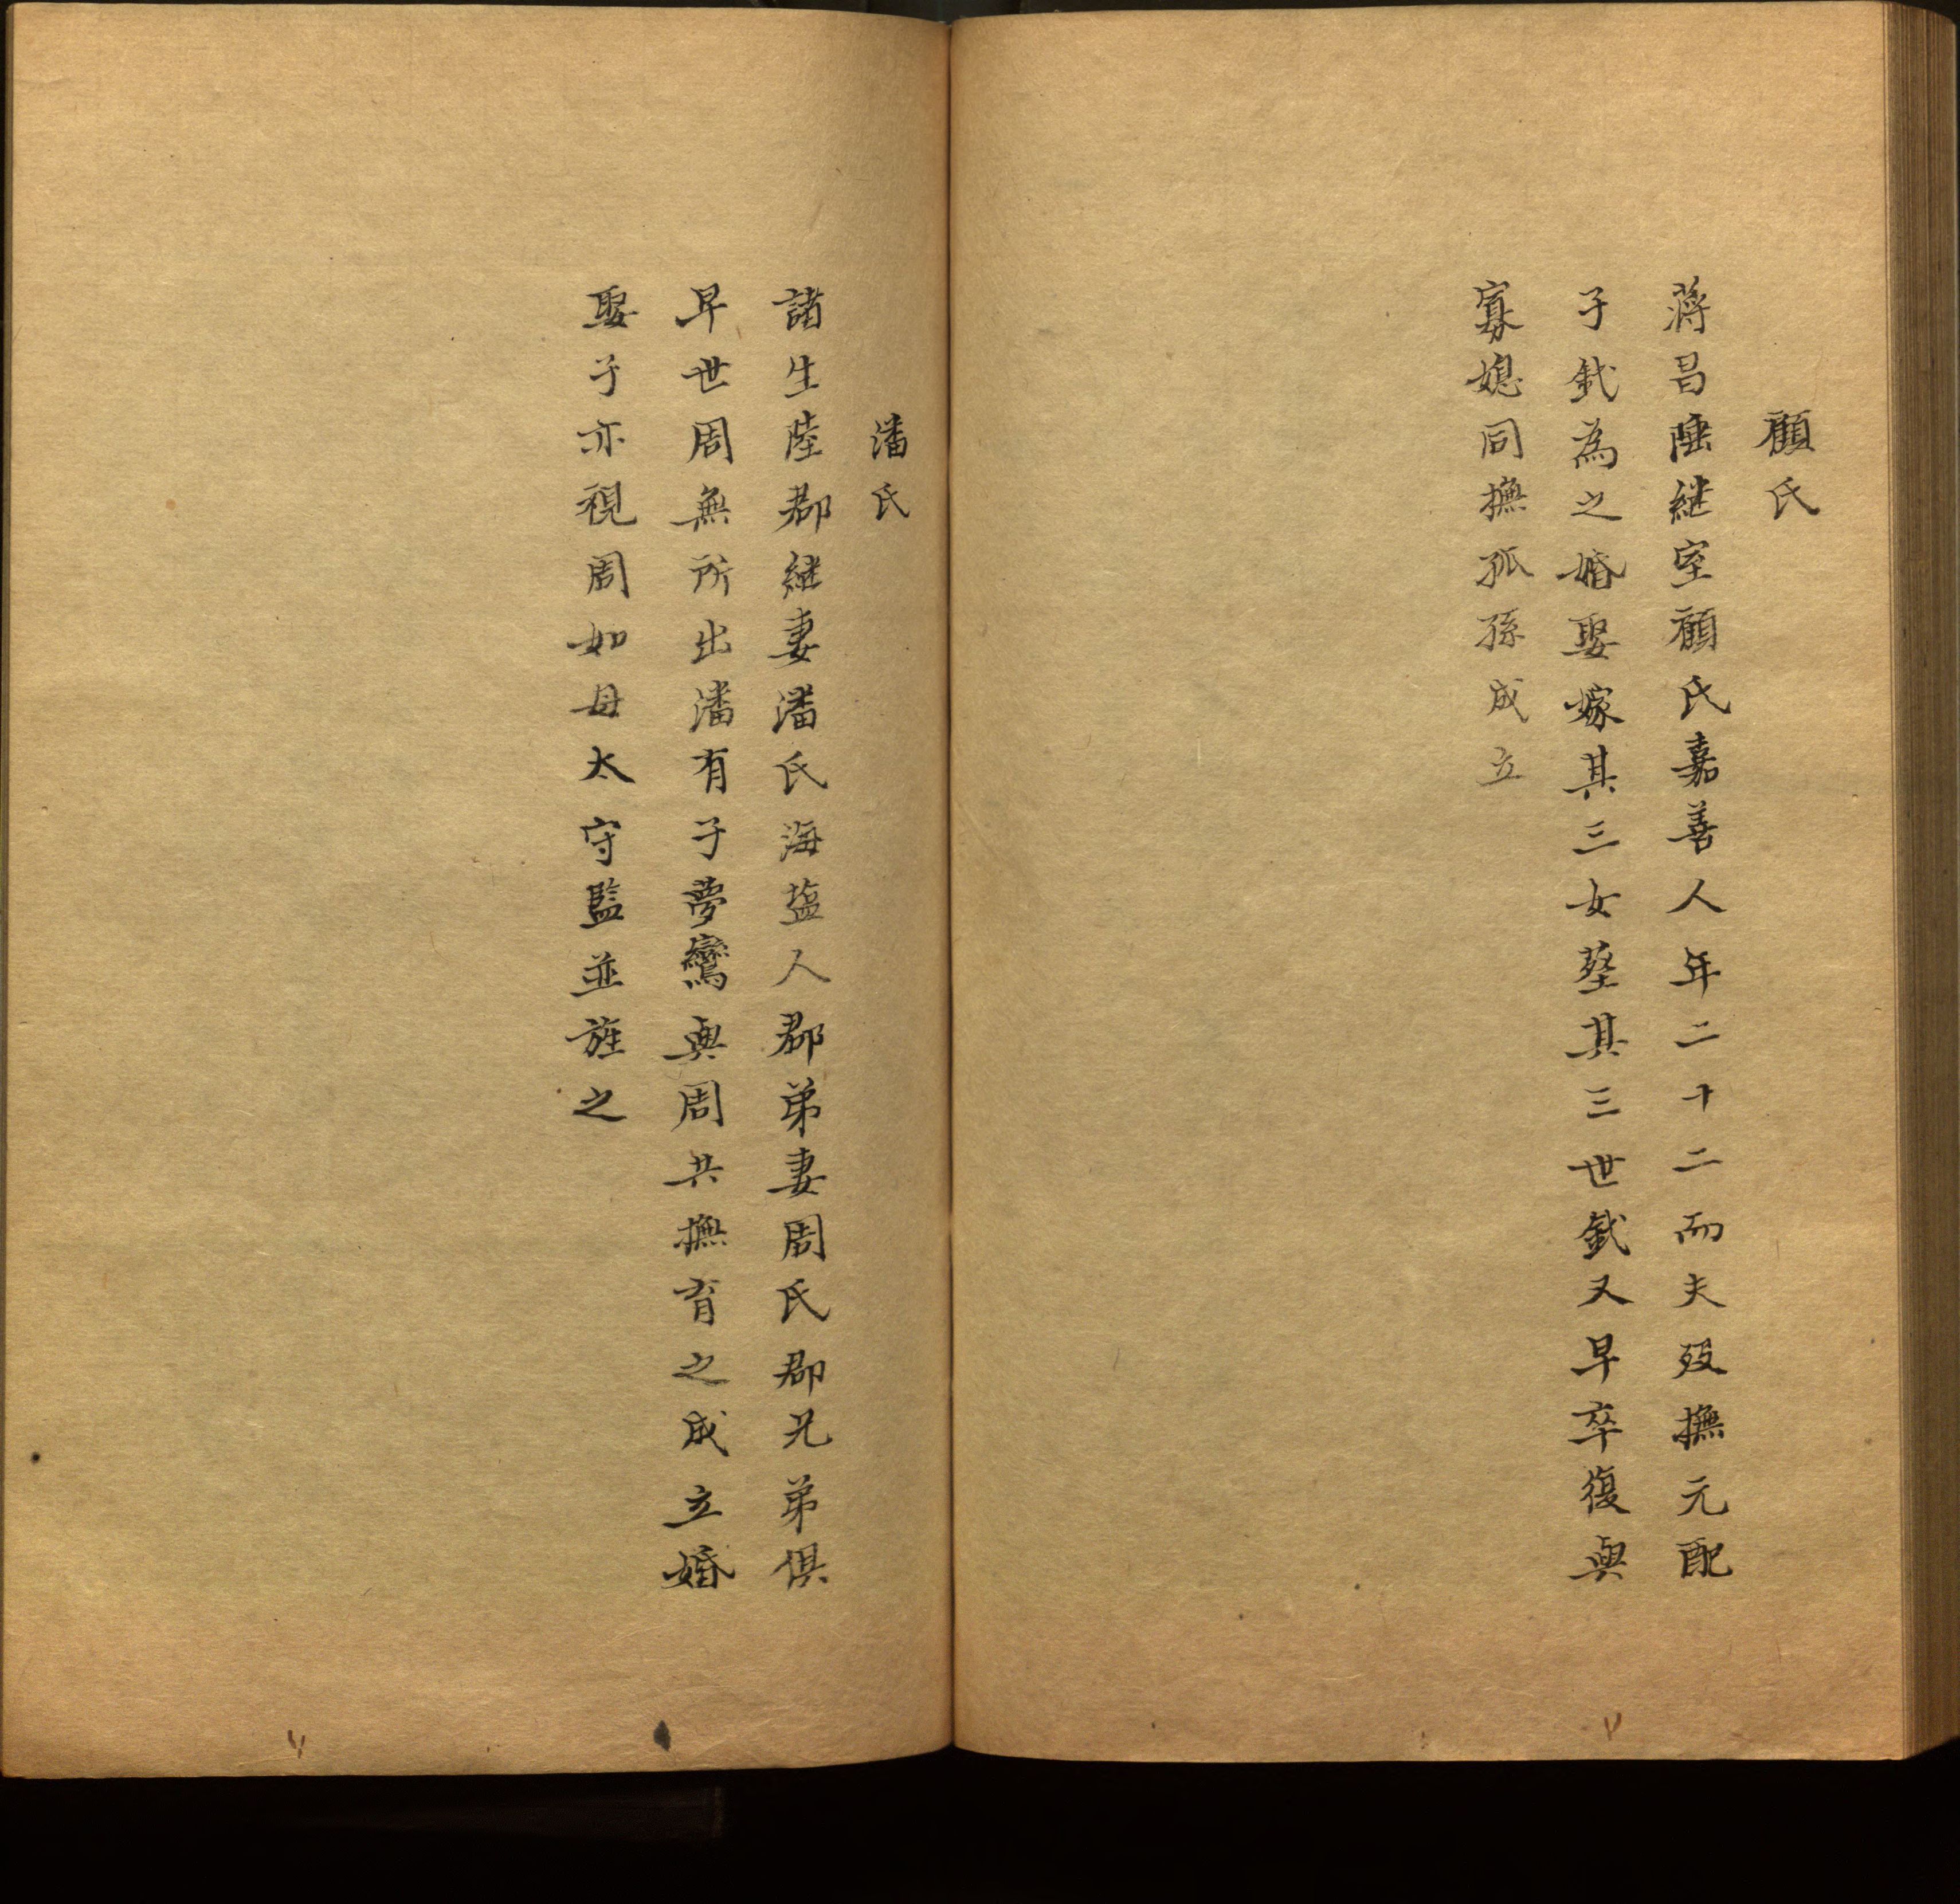 顧氏
蔣昌陞継室顧氏嘉善人年二十二而夫歿撫元配
子釴為之婚娶嫁其三女塟其三世釴又早卒復與
寡媳同撫孤孫成立
潘氏
諸生陸郡継妻潘氏海塩人郡弟妻周氏郡兄弟俱
早世周無所出潘有子夢鸞與周共撫育之成立婚
娶子亦視周如母太守監並旌之